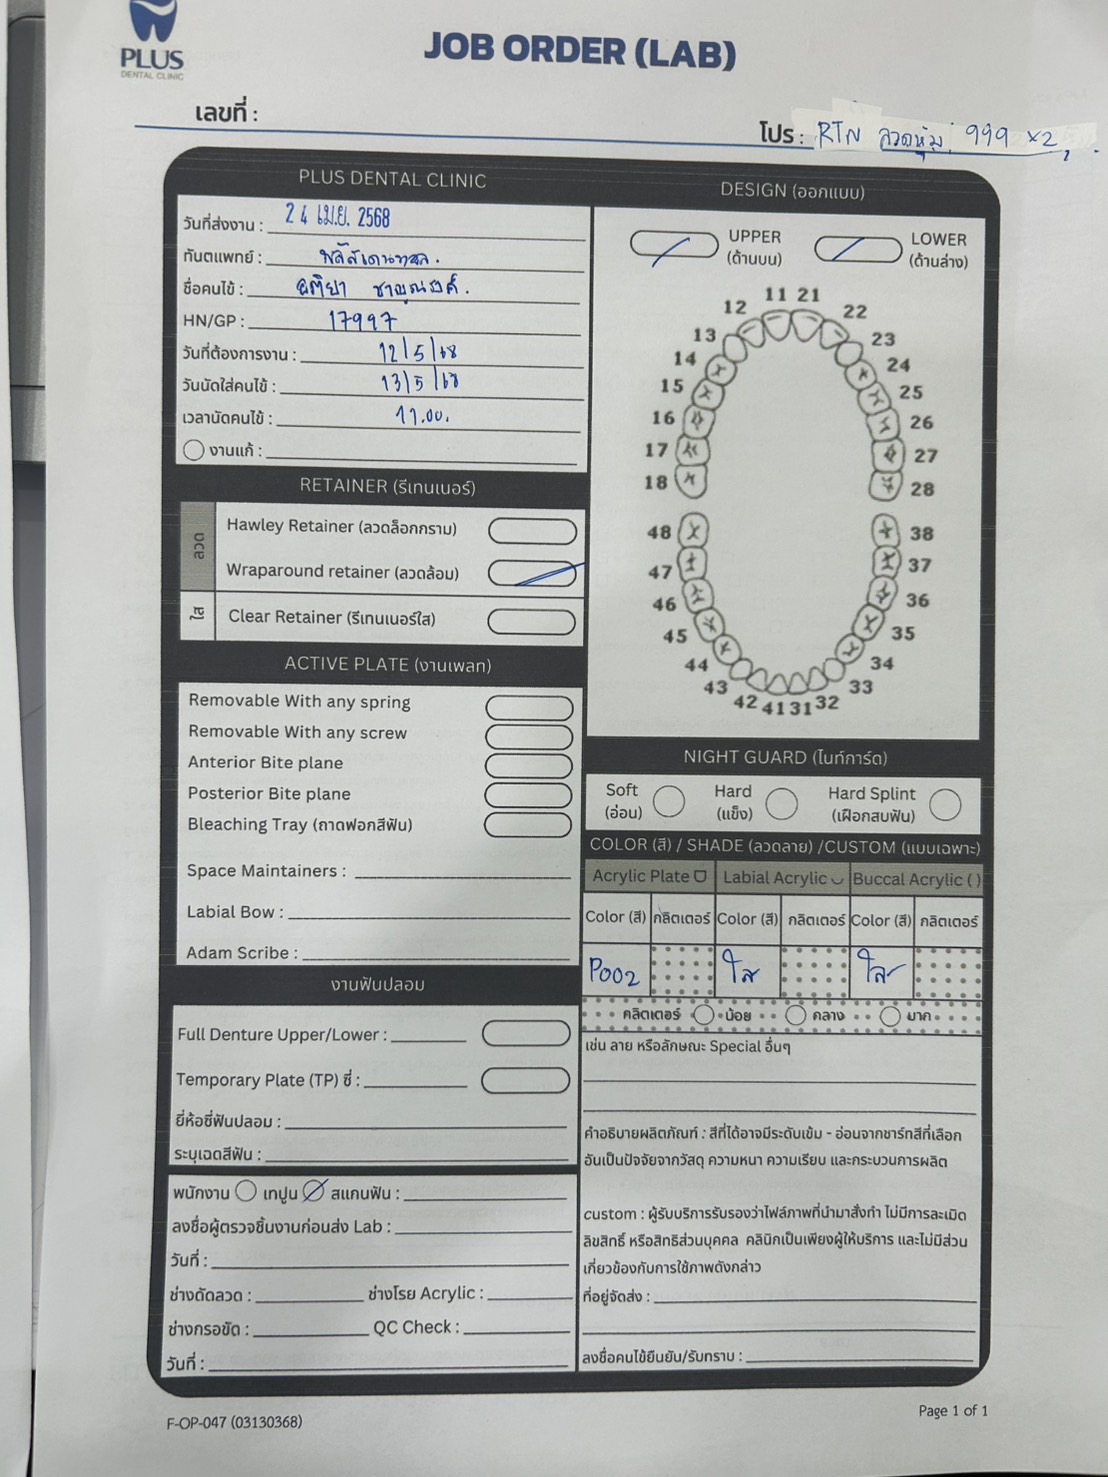 PLUS
DENTAL CLINIC
JOB ORDER (LAB)
เลขที่ :
โปร : RTN ลวดหุ้ม 999 x2,
PLUS DENTAL CLINIC
วันที่ส่งงาน : 24 เม.ย. 2568
ทันตแพทย์ : พลัสเดนทอล.
ชื่อคนไข้ :
HN/GP : 17997
วันที่ต้องการงาน : 12/5/68
วันนัดใส่คนไข้ : 13/5/68
เวลานัดคนไข้ : 11.00.
งานแก้ :
RETAINER (รีเทนเนอร์)
ลวด
Hawley Retainer (ลวดล็อกกราม)
Wraparound retainer (ลวดล้อม)
ใส
Clear Retainer (รีเทนเนอร์ใส)
ACTIVE PLATE (งานเพลท)
Removable With any spring
Removable With any screw
Anterior Bite plane
Posterior Bite plane
Bleaching Tray (ถาดฟอกสีฟัน)
Space Maintainers :
Labial Bow :
Adam Scribe :
งานฟันปลอม
Full Denture Upper/Lower :
Temporary Plate (TP) ซี่ :
ยี่ห้อซี่ฟันปลอม :
ระบุเฉดสีฟัน :
พนักงาน เทปูน สแกนฟัน :
ลงชื่อผู้ตรวจชิ้นงานก่อนส่ง Lab :
วันที่ :
ช่างดัดลวด : ช่างโรย Acrylic :
ช่างกรอขัด : QC Check :
วันที่ :
DESIGN (ออกแบบ)
UPPER
(ด้านบน)
LOWER
(ด้านล่าง)
11 21
12 22
13 23
14 24
15 25
16 26
17 27
18 28
48 38
47 37
46 36
45 35
44 34
43 33
42 41 31 32
NIGHT GUARD (ไนท์การ์ด)
Soft
(อ่อน)
Hard
(แข็ง)
Hard Splint
(เฝือกสบฟัน)
COLOR (สี) / SHADE (ลวดลาย) /CUSTOM (แบบเฉพาะ)
Acrylic Plate Labial Acrylic Buccal Acrylic ( )
Color (สี) กลิตเตอร์ Color (สี) กลิตเตอร์ Color (สี) กลิตเตอร์
P002 ใส ใส
กลิตเตอร์ น้อย กลาง มาก
เช่น ลาย หรือลักษณะ Special อื่นๆ
คำอธิบายผลิตภัณฑ์ : สีที่ได้อาจมีระดับเข้ม - อ่อนจากชาร์ทสีที่เลือก
อันเป็นปัจจัยจากวัสดุ ความหนา ความเรียบ และกระบวนการผลิต
custom : ผู้รับบริการรับรองว่าไฟล์ภาพที่นำมาสั่งทำ ไม่มีการละเมิด
ลิขสิทธิ์ หรือสิทธิส่วนบุคคล คลินิกเป็นเพียงผู้ให้บริการ และไม่มีส่วน
เกี่ยวข้องกับการใช้ภาพดังกล่าว
ที่อยู่จัดส่ง :
ลงชื่อคนไข้ยืนยัน/รับทราบ :
F-OP-047 (03130368)
Page 1 of 1